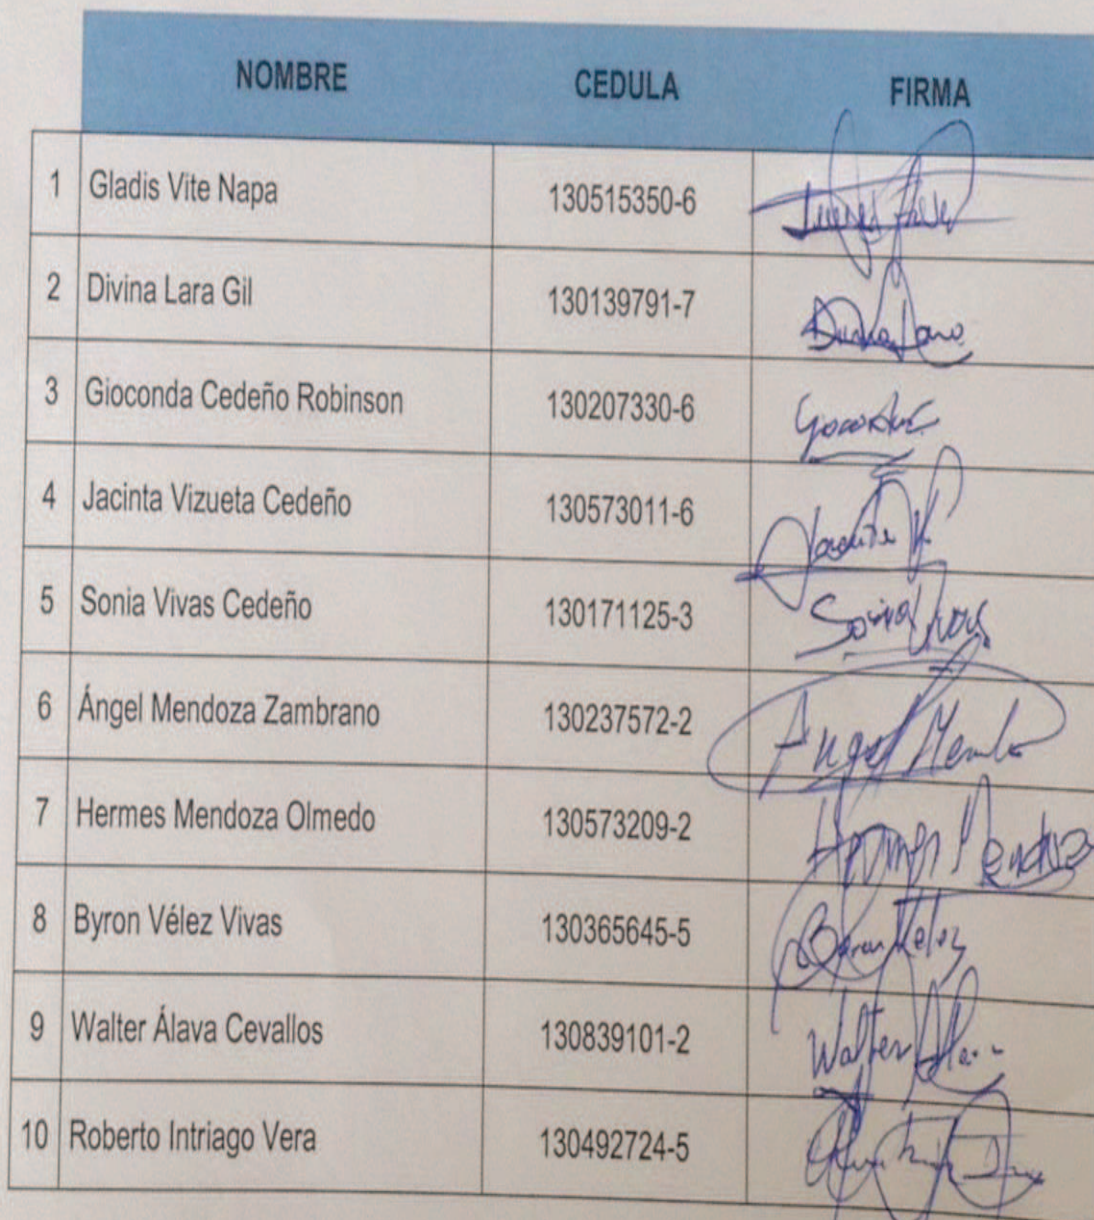 NOMBRE CEDULA FIRMA
1 Gladis Vite Napa 130515350-6
2 Divina Lara Gil 130139791-7 Divina Lara
3 Gioconda Cedeño Robinson 130207330-6
4 Jacinta Vizueta Cedeño 130573011-6 Jacinta V.
5 Sonia Vivas Cedeño 130171125-3 Sonia Vivas
6 Ángel Mendoza Zambrano 130237572-2 Angel
7 Hermes Mendoza Olmedo 130573209-2 Hermes Mendoza
8 Byron Vélez Vivas 130365645-5 Byron Velez
9 Walter Álava Cevallos 130839101-2 Walter
10 Roberto Intriago Vera 130492724-5